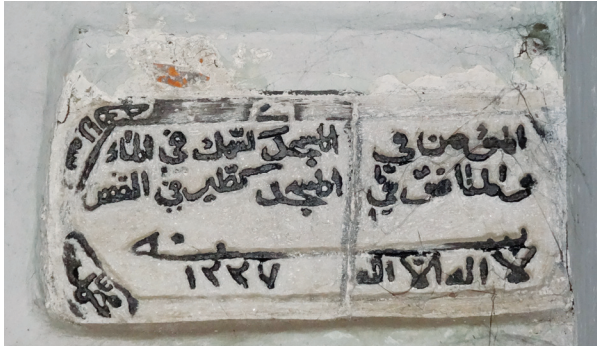 المؤمن في المسجد كالسمك في الماء
والمنافق في المسجد كالطير في القفص
لا اله الا الله سنه ١٢٢٧